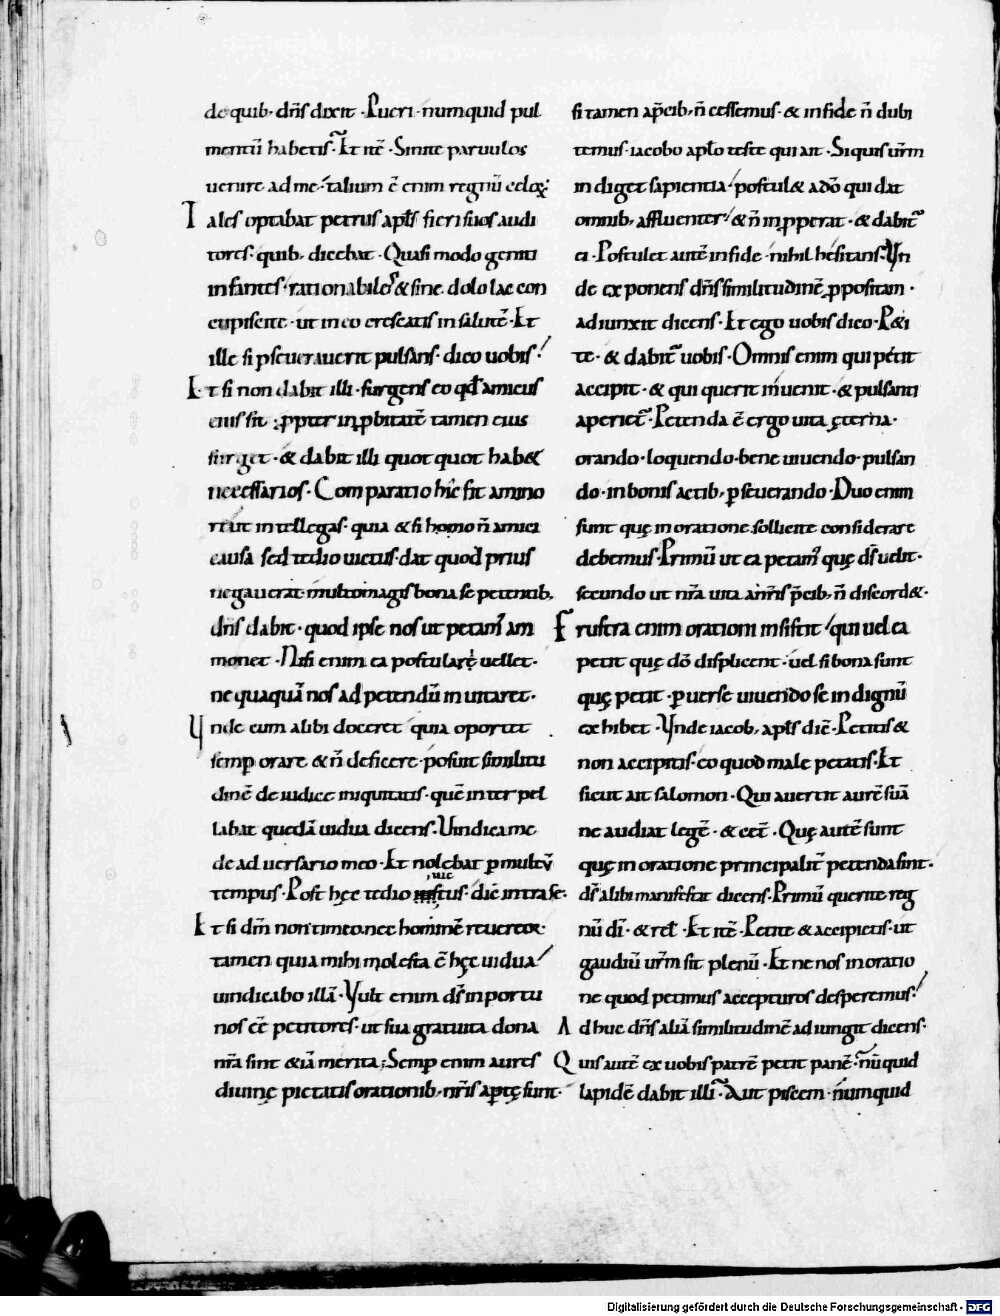 de quib· dn̄s dixit · Pueri · numquid pul
mentū habetis · Et itē · Sinite paruulos
uenire ad me · talium ē enim regnū celoꝝ·
Tales optabat petrus apl̄s fieri suos audi
tores · quib· dicebat · Quasi modo geniti
infantes · rationabiles & sine dolo lac con
cupiscite · ut in eo crescatis in salutē · Et
ille si ꝑseuerauerit pulsans · dico uobis·
Et si non dabit illi · surgens eo qd̄ amicus
eius sit · ꝓpter inꝓbitatē tamen eius
surget · & dabit illi quotquot hab&
necessarios · Comparatio hec sit a mino
ri ut intellegas · quia & si homo n̄ amici
causa sed tedio uictus dat quod prius
negauerat · multo magis bona se petentib·
dn̄s dabit · quod ipse nos ut petam᾽ am
monet · Nisi enim ea postulare uellet·
nequaquā nos ad petendū inuitaret·
Vnde cum alibi doceret quia oportet
semꝑ orare & n̄ deficere · posuit similitu
dinē de iudice iniquitatis · quē interpel
labat quedā uidua dicens · Vindica me
de aduersario meo · Et nolebat ꝑ multū
tempus · Post hęc tedio uictus · dic̄ intra se·
Et si dm̄ non timeo nec hominē reuereor·
tamen quia mihi molesta ē hęc uidua
uindicabo illā · Vult enim ds̄ inportu
nos ēē petitores · ut sua gratuita dona
nr̄a sint &iā merita; Semꝑ enim aures
diuinę pietatis orationib· nr̄is aꝑtę sunt·
si tamen p̄cib· n̄ cessemus · & in fide n̄ dubi
temus · iacobo apl̄o teste qui ait · Siquis ur̄m
indiget sapientia · postul& a dō qui dat
omnib· affluenter · & n̄ inꝓperat · & dabit᾽
ei · Postulet autē in fide · nihil hesitans · Vn
de exponens dn̄s similitudinē ꝓpositam·
adiunxit dicens · Et ego uobis dico · P&i
te · & dabit᾽ uobis · Omnis enim qui petit
accipit · & qui querit inuenit · & pulsanti
aperiet᾽ · Petenda ē ergo uita ęterna·
orando · loquendo · bene uiuendo · pulsan
do · in bonis actib· ꝑseuerando · Duo enim
sunt quę in oratione sollicite considerare
debemus · Primū ut ea petam᾽ quę ds̄ iubet·
secundo ut nr̄a uita nr̄is p̄cib· n̄ discord&·
Frustra enim orationi insistit · qui uel ea
petit quę dō displicent · uel si bona sunt
quę petit · ꝑuerse uiuendo se indignū
exhibet · Vnde iacob· apl̄s dic̄ · Petitis &
non accipitis · eo quod male petatis · Et
sicut ait salomon · Qui auertit aurē suā
ne audiat legē · & cet̄ · Quę autē sunt
quę in oratione principalit̄ petenda sint·
ds̄ alibi manifestat dicens · Primū querite reg
nū dī · & rel̄ · Et itē · Petite & accipietis · ut
gaudiū ur̄m sit plenū · Et ne nos in oratio
ne quod petimus accepturos desperemus·
Adhuc dn̄s aliā similitudinē adiungit dicens·
Quis autē ex uobis patrē petit panē · nūquid
lapidē dabit illi · Aut piscem · numquid
Digitalisierung gefördert durch die Deutsche Forschungsgemeinschaft · DFG